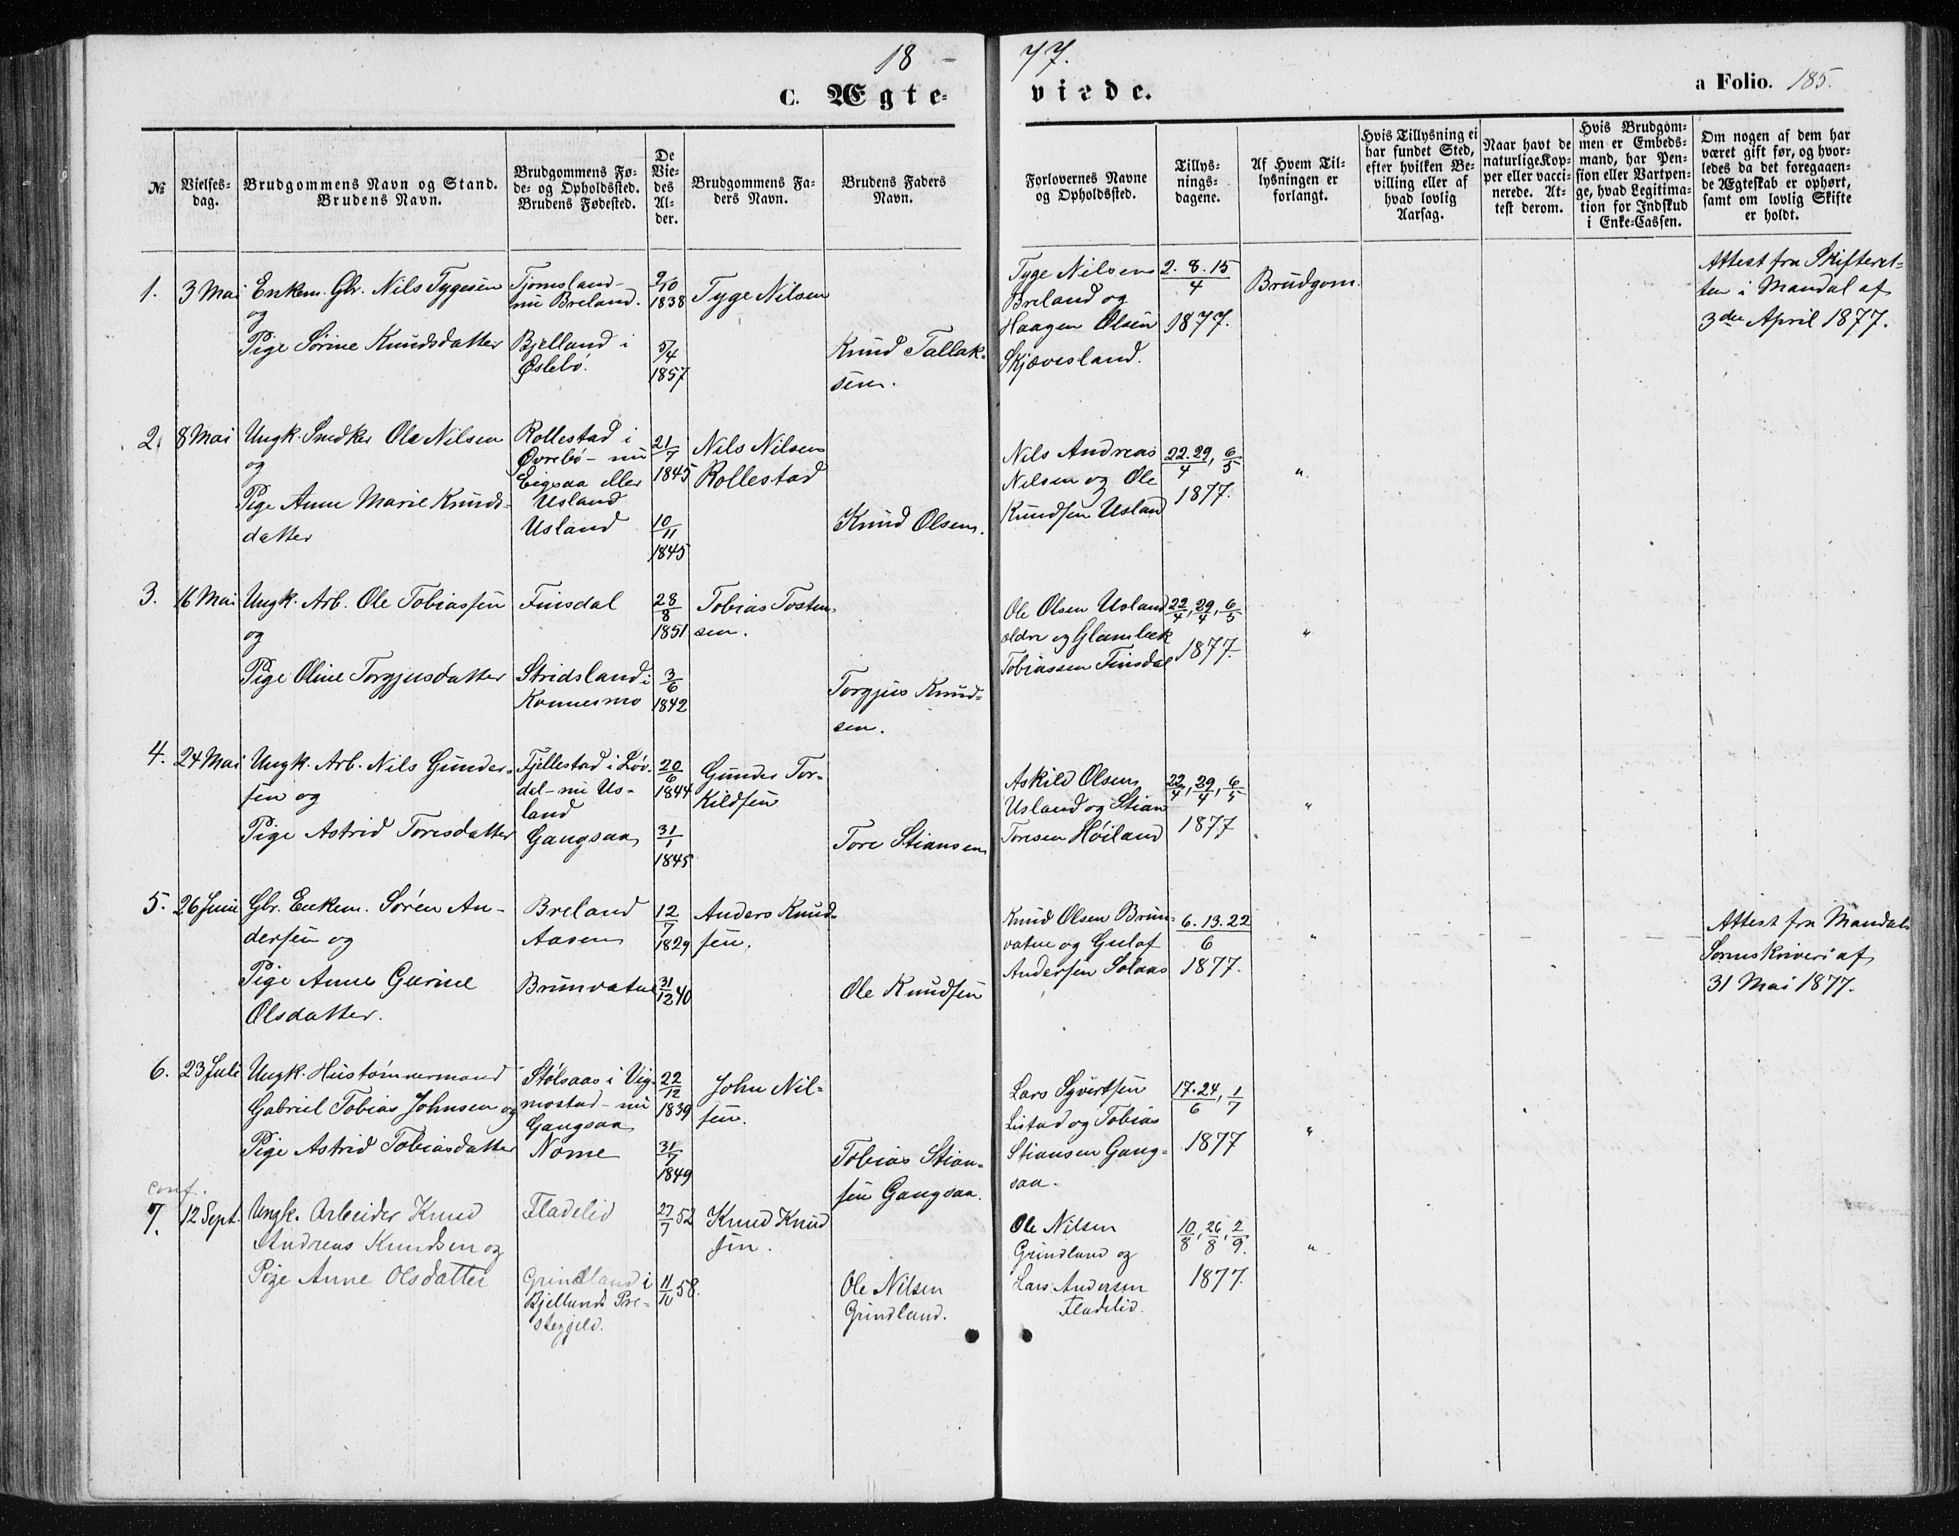 18 – 77.
C. Ægte- viede.
a Folio. 185.
№
Vielses-
dag.
Brudgommens Navn og Stand.
Brudens Navn.
Brudgommens Fø-
de- og Opholdssted.
Brudens Fødested.
De
Vie-
des
Al-
der.
Brudgommens Fa-
ders Navn.
Brudens Faders
Navn.
Forlovernes Navne
og Opholdssted.
Tillys-
nings-
dagene.
Af Hvem Til-
lysningen er
forlangt.
Hvis Tillysning ei
har fundet Sted,
efter hvilken Be-
villing eller af
hvad lovlig
Aarsag.
Naar havt de
naturlige Kop-
per eller vacci-
nerede. At-
test derom.
Hvis Brudgom-
men er Embeds-
mand, har Pen-
sion eller Vartpen-
ge, hvad Legitima-
tion for Indskud
i Enke-Cassen.
Om nogen af dem har
været gift før, og hvor-
ledes da det foregaaen-
de Ægteskab er ophørt,
samt om lovlig Skifte
er holdt.
1.
3 Mai
Enkem. Gbr. Nils Tygesen
og
Pige Sørine Knudsdatter
Tjomsland-
nu Breland.
Bjelland i
Øslebö.
9/10
1838
5/4
1857
Tyge Nilsen
Knud Tallak-
sen.
Tyge Nilsen
Breland og
Haagen Olsen
Skjævesland.
2. 8. 15
4
1877.
Brudgom.
Attest fra Skifteret-
ten i Mandal af
3die April 1877.
2.
8 Mai
Ungk. Snedker Ole Nilsen
og
Pige Anne Marie Knuds-
datter
Rollestad i
Øvrebö - nu
Eegsaa eller
Usland
Usland
21/7
1845
10/11
1845
Nils Nilsen
Rollestad
Knud Olsen.
Nils Andreas
Nilsen og Ole
Knudsen Usland
22. 29/4, 6/5
1877.
"
3.
16 Mai
Ungk. Arb. Ole Tobiassen
og
Pige Oline Torgjusdatter
Finsdal
Stridsland i
Konnesmo
28/8
1851
3/6
1842
Tobias Tosten-
sen.
Torgjus Knud-
sen.
Ole Olsen Usland
ældre og Glambæk
Tobiassen Finsdal
22/4, 29/4, 6/5
1877.
"
4.
24 Mai
Ungk. Arb. Nils Gunder-
sen og
Pige Astrid Toresdatter
Fjellestad i Løv-
dal - nu Us-
land
Gangsaa
20/6
1844
31/1
1845
Gunder Tor-
kildsen
Tore Stiansen
Askild Olsen
Usland og Stian
Toresen Høiland
22/4, 29/4, 6/5
1877
"
5.
26 Juni
Gbr. Enkem. Søren An-
dersen og
Pige Anne Gurine
Olsdatter.
Breland
Aasen
Brunvatne
12/7
1829
31/12 40
Anders Knud-
sen.
Ole Knudsen
Knud Olsen Brun-
vatne og Gulaf
Andersen Solaas
6. 13. 22
6
1877.
"
Attest fra Mandals
Sorenskriveri af
31 Mai 1877.
6.
23 Juli
Ungk. Hustømmermand
Gabriel Tobias Johnsen og
Pige Astrid Tobiasdatter
Stølsaas i Vig-
mostad - nu
Gangsaa
Nome
22/12
1839
31/7
1849
John Nil-
sen.
Tobias Stian-
sen Gangsaa.
Lars Syvertsen
Listad og Tobias
Stiansen Gang-
saa.
17. 24/6, 1/7
1877
"
conf.
7.
12 Sept.
Ungk. Arbeider Knud
Andreas Knudsen og
Pige Anne Olsdatter
Fladelid
Grindland i
Bjellands Præ-
stegjeld.
27/7 52
11/10 58.
Knud Knud
sen.
Ole Nilsen
Grindland.
Ole Nilsen
Grindland og
Lars Andersen
Fladelid.
10/8, 26/8, 2/9.
1877.
"